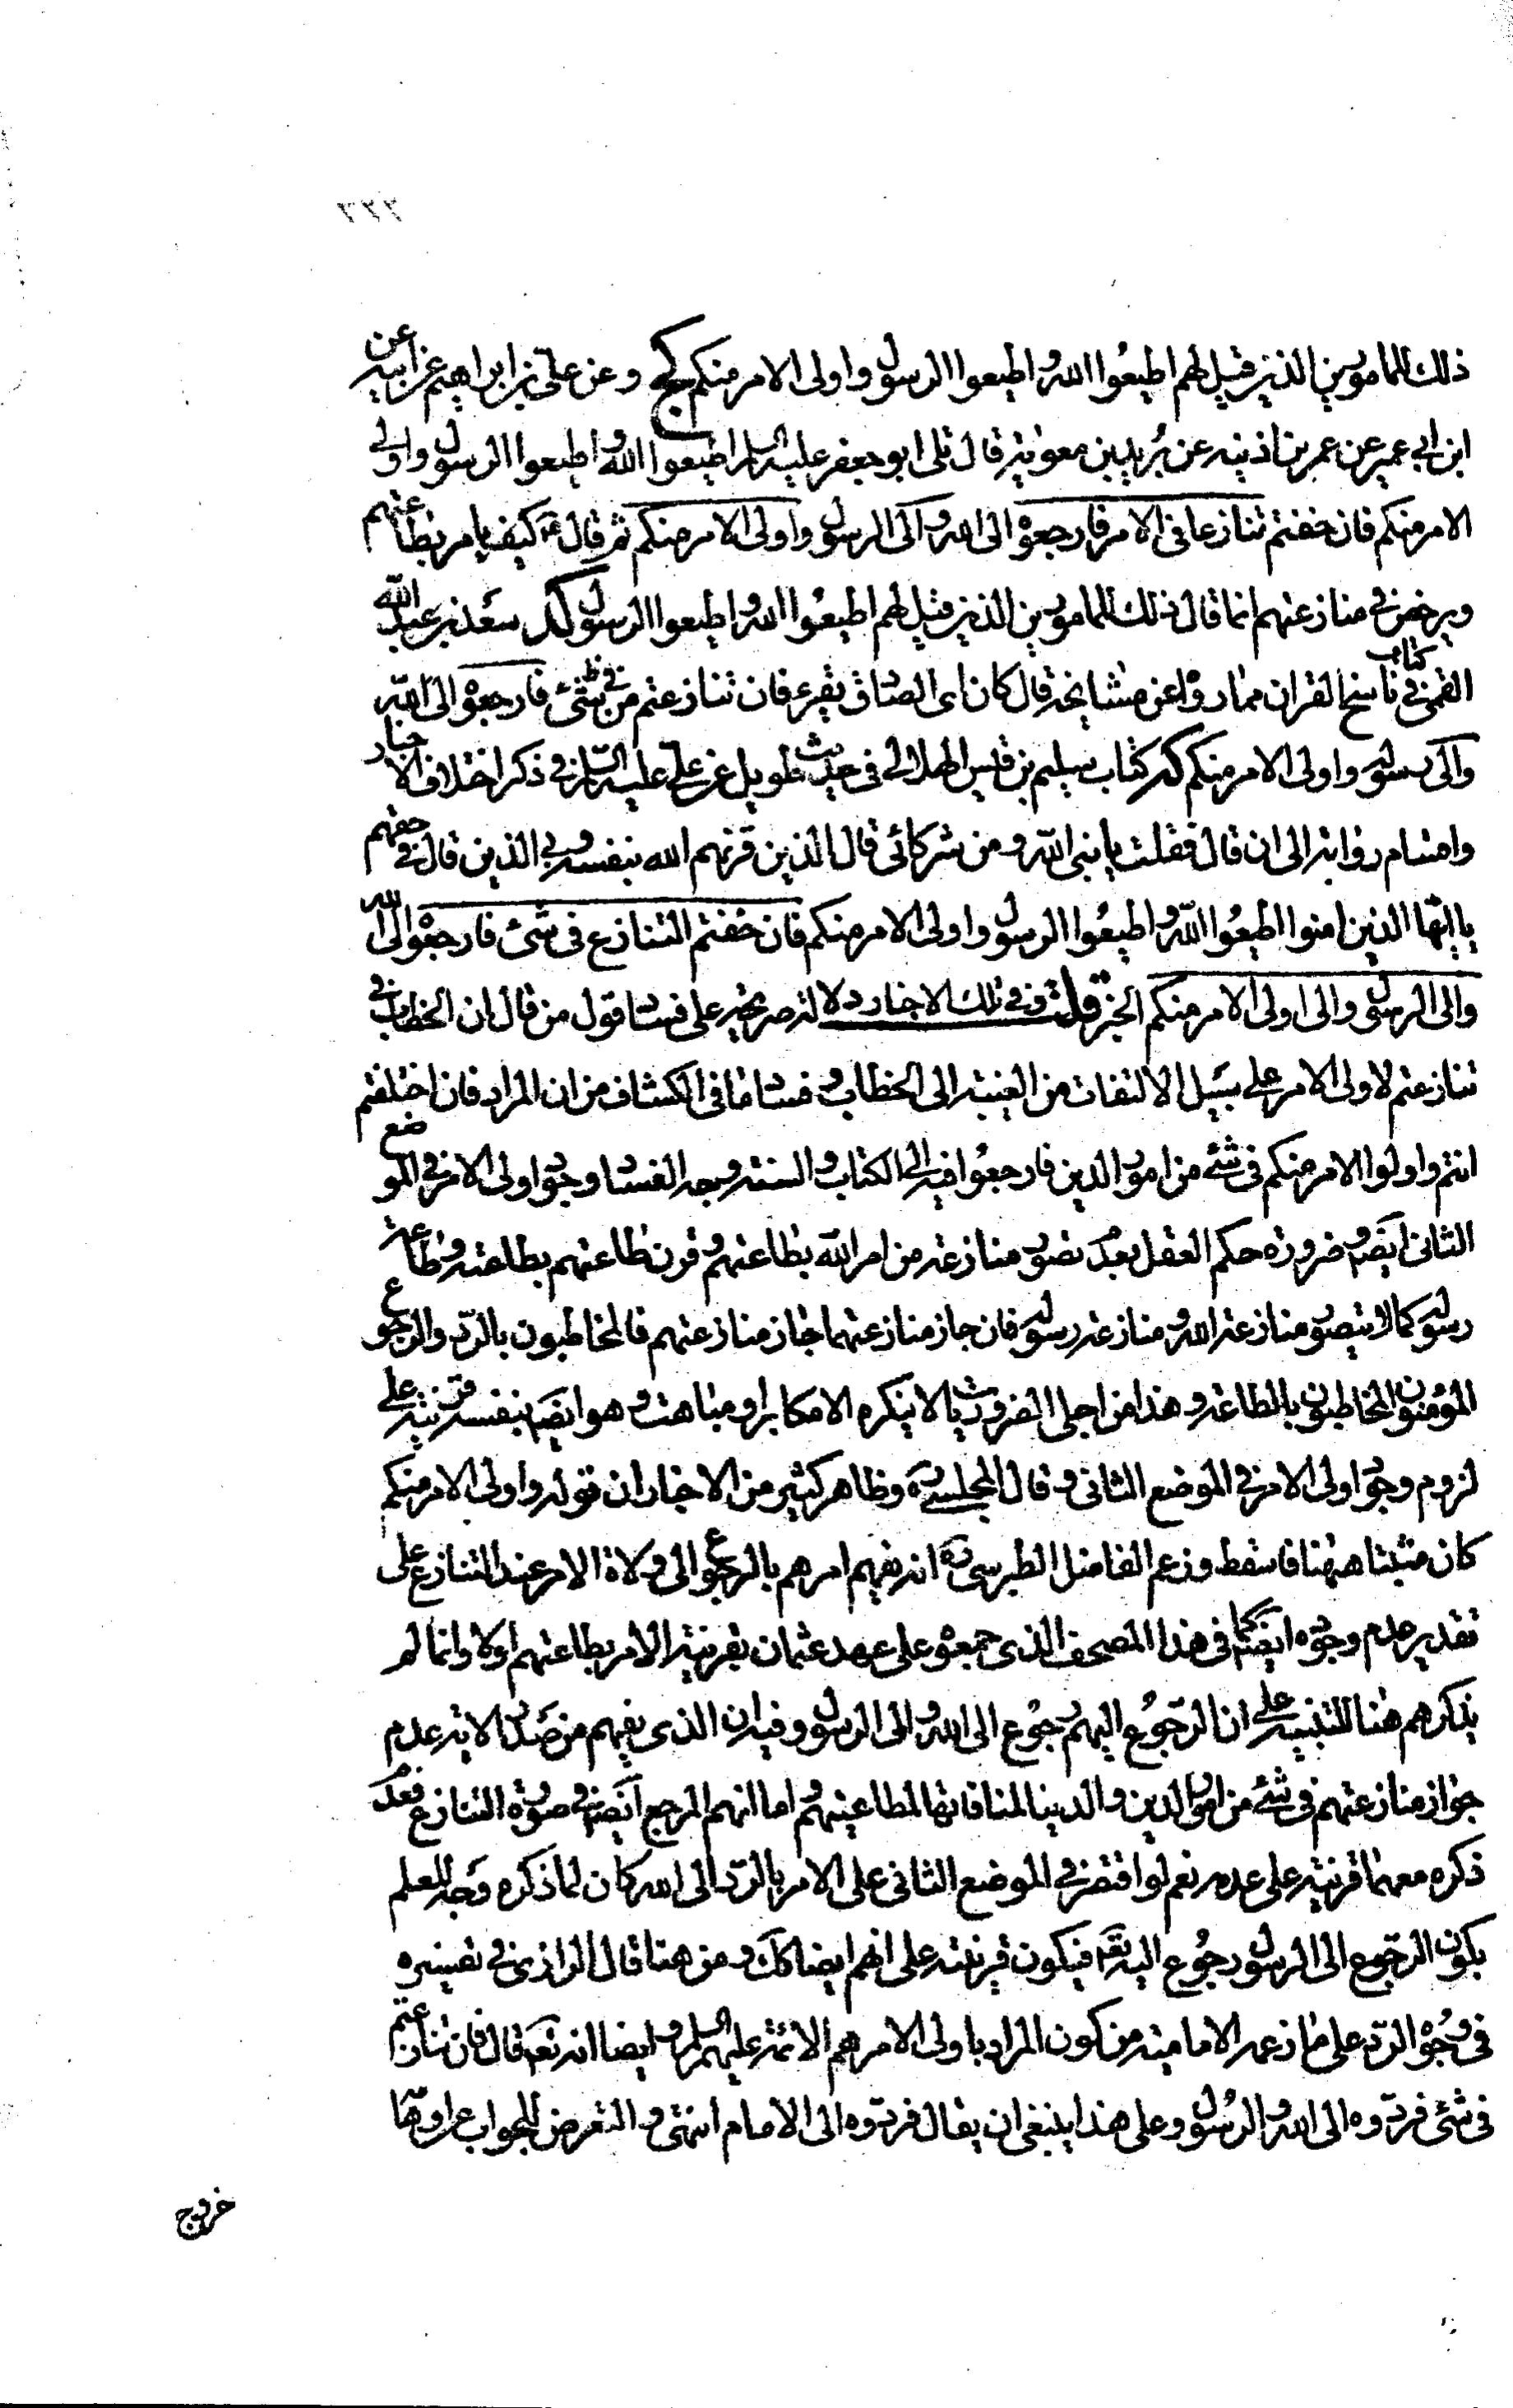 ٢٢٢
ذلك للمامورين الذين قيل لهم اطيعوا الله واطيعوا الرسول واولى الامر منكم كج وعن على بن ابراهيم عن ابيه عن
ابن ابى عمير عن عمر بن اذينه عن بريد بن معوية قال تلى ابو جعفر عليه السلم اطيعوا الله واطيعوا الرسول واولى
الامر منكم فان خفتم تنازعا فى الامر فارجعوه الى الله والى الرسول واولى الامر منكم ثم قال ع كيف يامر بطاعتهم
ويرخص فى منازعتهم انما قال ذلك للمامورين الذين قيل لهم اطيعوا الله واطيعوا الرسول كد سعد بن عبد الله
القمى فى كتاب ناسخ القران مما رواه عن مشايخه قال كان اى الصادق يقرء فان تنازعتم من شئ فارجعوه الى الله
والى رسوله واولى الامر منكم كه كتاب سليم بن قيس الهلالى فى حديث طويل عن على عليه السلم فى ذكر اختلاف الاخبار
واقسام رواته الى ان قال فقلت يا نبى الله ومن شركائى قال الذين قرنهم الله بنفسه وبى الذين قال فى حقهم
يا ايها الذين امنوا اطيعوا الله واطيعوا الرسول واولى الامر منكم فان خفتم التنازع فى شئ فارجعوه الى الله
والى الرسول والى اولى الامر منكم الخبر قلت وفى تلك الاخبار دلالة صريحة على فساد قول من قال ان الخطاب فى
تنازعتم لاولى الامر على سبيل الالتفات من الغيبة الى الخطاب وفساد ما فى الكشاف من ان المراد فان اختلفتم
انتم واولوا الامر منكم فى شئ من امور الدين فارجعوا فيه الى الكتاب والسنة وجه الفساد وجود اولى الامر فى الموضع
الثانى ايض وضرورة حكم العقل بعد تصور منازعة من امر الله بطاعتهم وقرن طاعتهم بطاعته وطاعة
رسوله كما لا يتصور منازعة الله ومنازعة رسوله فان جاز منازعتهما جاز منازعتهم فالمخاطبون بالرد والرجوع
المؤمنون المخاطبون بالطاعة وهذا من اجلى الضروريات لا ينكره الا مكابر او مباهت وهو ايضا بنفسه قرينة على
لزوم وجود اولى الامر فى الموضع الثانى وقال المجلسى ره وظاهر كثير من الاخبار ان قوله واولى الامر منكم
كان مثبتا هيهنا فاسقط وزعم الفاضل الطبرسى ره انه يفهم امرهم بالرجوع الى ولاة الامر عند التنازع على
تقدير عدم وجوده ايضا كما فى هذا المصحف الذى جمعوه على عهد عثمان بقرينة الامر بطاعتهم اولا وانما لم
يذكرهم هنا للتنبيه على ان الرجوع اليهم رجوع الى الله والى الرسول وفيه ان الذى يفهم من صدر الاية عدم
جواز منازعتهم فى شئ من امور الدين والدنيا لمنافاتها لمطاعيتهم واما انهم المرجع ايضا فى صورة التنازع فعدم
ذكره معهما قرينة على عدمه نعم لو اقتصر فى الموضع الثانى على الامر بالرد الى الله كان لما ذكره وجه للعلم
بكون الرجوع الى الرسول رجوع اليه تعالى فيكون قرينة على انهم ايضا كك ومن هنا قال الرازى فى تفسيره
فى وجوه الرد على ما زعمه الامامية من كون المراد باولى الامر هم الائمة عليهم السلم وايضا انه تعالى قال فان تنازعتم
فى شئ فردوه الى الله والرسول وعلى هذا ينبغى ان يقال فردوه الى الامام انتهى والتعرض للجواب
خروج